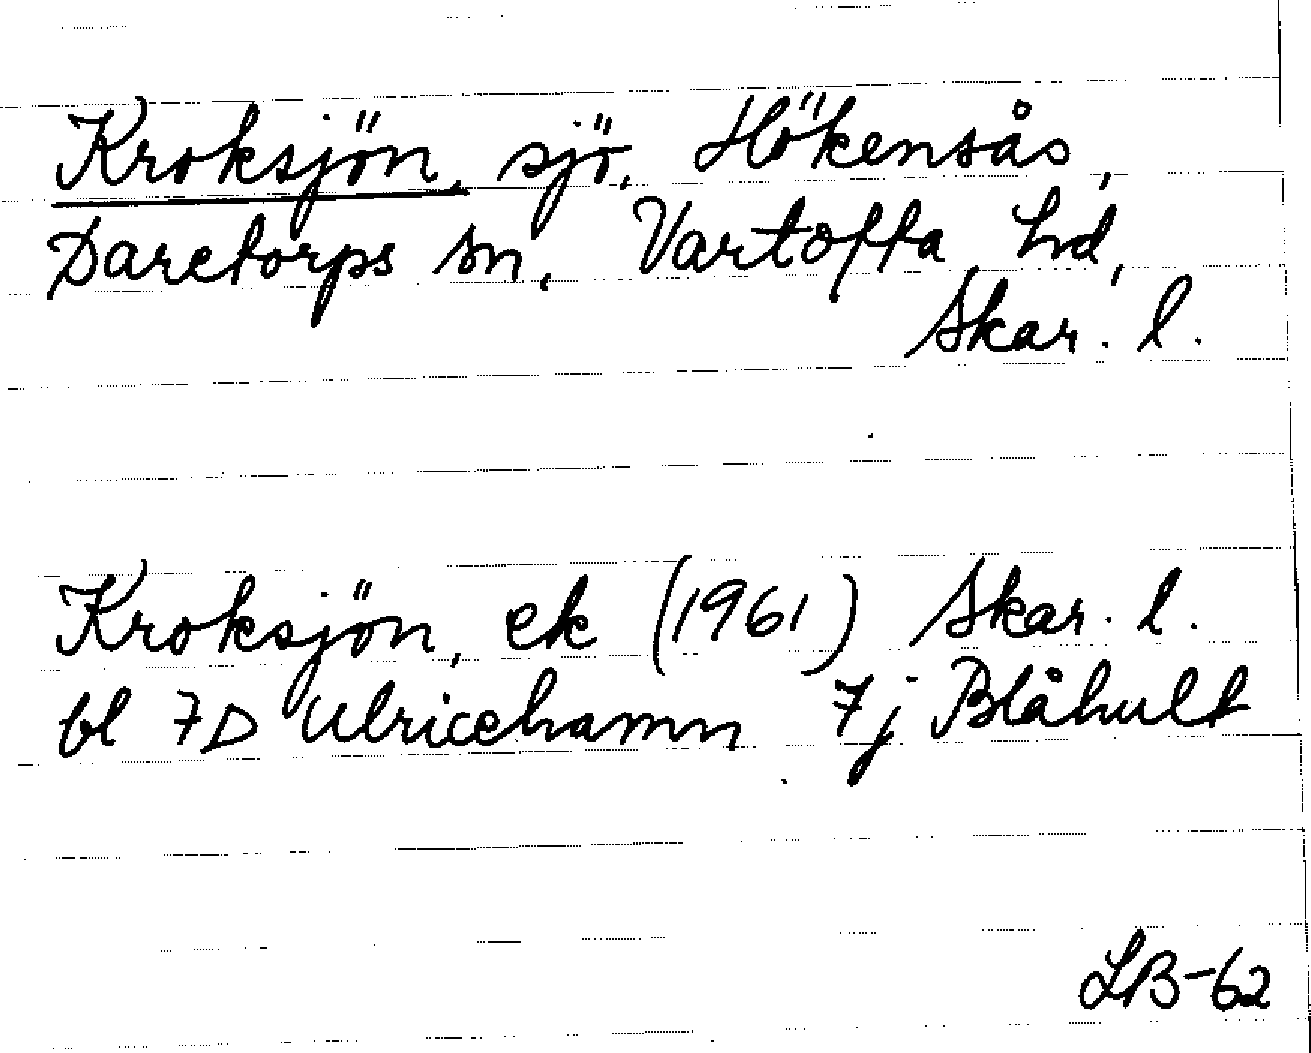 Kroksjön, sjö, Hökensås,
Daretorps sn, Vartofta hd,
Skar. l.
Kroksjön, ek (1961) Skar. l.
bl 7D Ulricehamn 7j Blåhult
LB-62